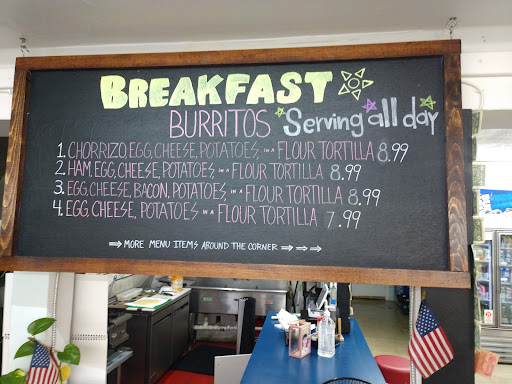 BREAKFAST
BURRITOS Serving all day
1. CHORRIZO, EGG, CHEESE, POTATOES, IN A FLOUR TORTILLA 8.99
2. HAM, EGG, CHEESE, POTATOES IN A FLOUR TORTILLA 8.99
3. EGG, CHEESE, BACON, POTATOES, IN A FLOUR TORTILLA 8.99
4. EGG, CHEESE, POTATOES IN A FLOUR TORTILLA 7.99
⇒ MORE MENU ITEMS AROUND THE CORNER ⇒ ⇒ ⇒